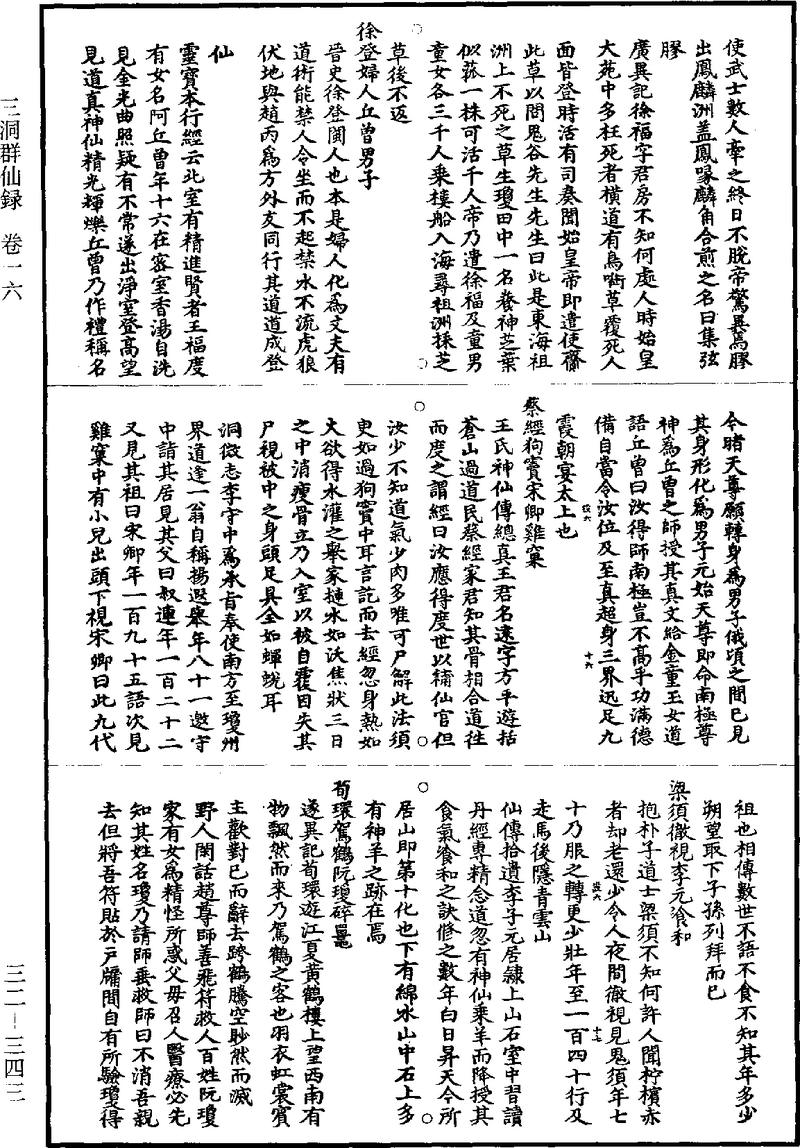 三洞群仙録　卷一六
三二－三四三
使武士數人牽之終日不脫帝驚異焉膠
出鳳麟洲蓋鳳喙麟角合煎之名曰集弦
膠
廣異記徐福字君房不知何處人時始皇
大苑中多枉死者橫道有鳥啣草覆死人
面皆登時活有司奏聞始皇帝即遣使齎
此草以問鬼谷先生先生曰此是東海祖
洲上不死之草生瓊田中一名養神芝葉
似菰一株可活千人帝乃遣徐福及童男
童女各三千人乘樓船入海尋祖洲採芝
草後不返
徐登婦人丘曾男子
晉史徐登閩人也本是婦人化為丈夫有
道術能禁人令坐而不起禁水不流虎狼
伏地與趙丙為方外友同行其道道成登
仙
靈寶本行經云此室有精進賢者王福度
有女名阿丘曾年十六在密室香湯自洗
見金光曲照疑有不常遂出淨室登高望
見道真神仙精光輝爍丘曾乃作禮稱名
今睹天尊願轉身為男子俄頃之間已見
其身形化為男子元始天尊即命南極尊
神為丘曾之師授其真文給金童玉女道
語丘曾曰汝得師南極豈不高乎功滿德
備自當令汝位及至真超身三界迅足九
霞朝宴太上也
蔡經狗竇宋卿雞窠
王氏神仙傳總真王君名遠字方平遊括
蒼山過道民蔡經家君知其骨相合道往
而度之謂經曰汝應得度世以補仙官但
汝少不知道氣少肉多唯可尸解此法須
臾如過狗竇中耳言訖而去經忽身熱如
火欲得水灌之舉家捷水如沃焦狀三日
之中消瘦骨立乃入室以被自覆因失其
尸視被中之身頭足具全如蟬蛻耳
洞微志李守中為承旨奉使南方至瓊州
界道逢一翁自稱揚遐舉年八十一邀守
中詣其居見其父曰叔連年一百二十二
又見其祖曰宋卿年一百九十五語次見
雞窠中有小兒出頭下視宋卿曰此九代
祖也相傳數世不語不食不知其年多少
朔望取下子孫列拜而已
梁須徹視李元飡和
抱朴子道士梁須不知何許人聞柠檳赤
者却老還少令人夜間徹視見鬼須年七
十乃服之轉更少壯年至一百四十行及
走馬後隱青雲山
仙傳拾遺李子元居隸上山石室中習讀
丹經專精念道忽有神仙乘羊而降授其
食氣飡和之訣修之數年白日昇天今所
居山即第十化也下有綿水山中石上多
有神羊之跡在焉
荀環駕鶴阮瓊碎鼍
述異記荀環遊江夏黃鶴樓上望西南有
物飄然而來乃駕鶴之客也羽衣虹裳賓
主歡對已而辭去跨鶴騰空眇然而滅
野人閑話趙尊師善飛符救人百姓阮瓊
家有女為精怪所惑父毋召人醫療必先
知其姓名瓊乃請師垂救師曰不消吾親
去但將吾符貼於户牖間自有所驗瓊得